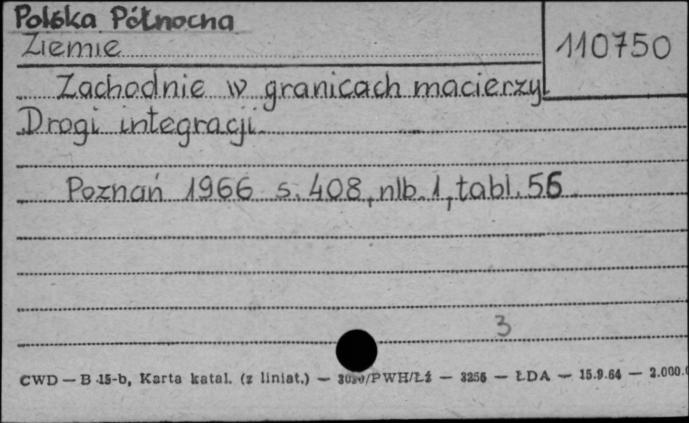 Polska Północna
Ziemie
110750
Zachodnie w granicach macierzy
Drogi integracji
Poznań 1966 s. 408, nlb. 1, tabl. 56
3
CWD — B 15-b, Karta katal. (z liniat.) — /PWH/Łź — 3256 — ŁDA — 15.9.64 — 2.000.